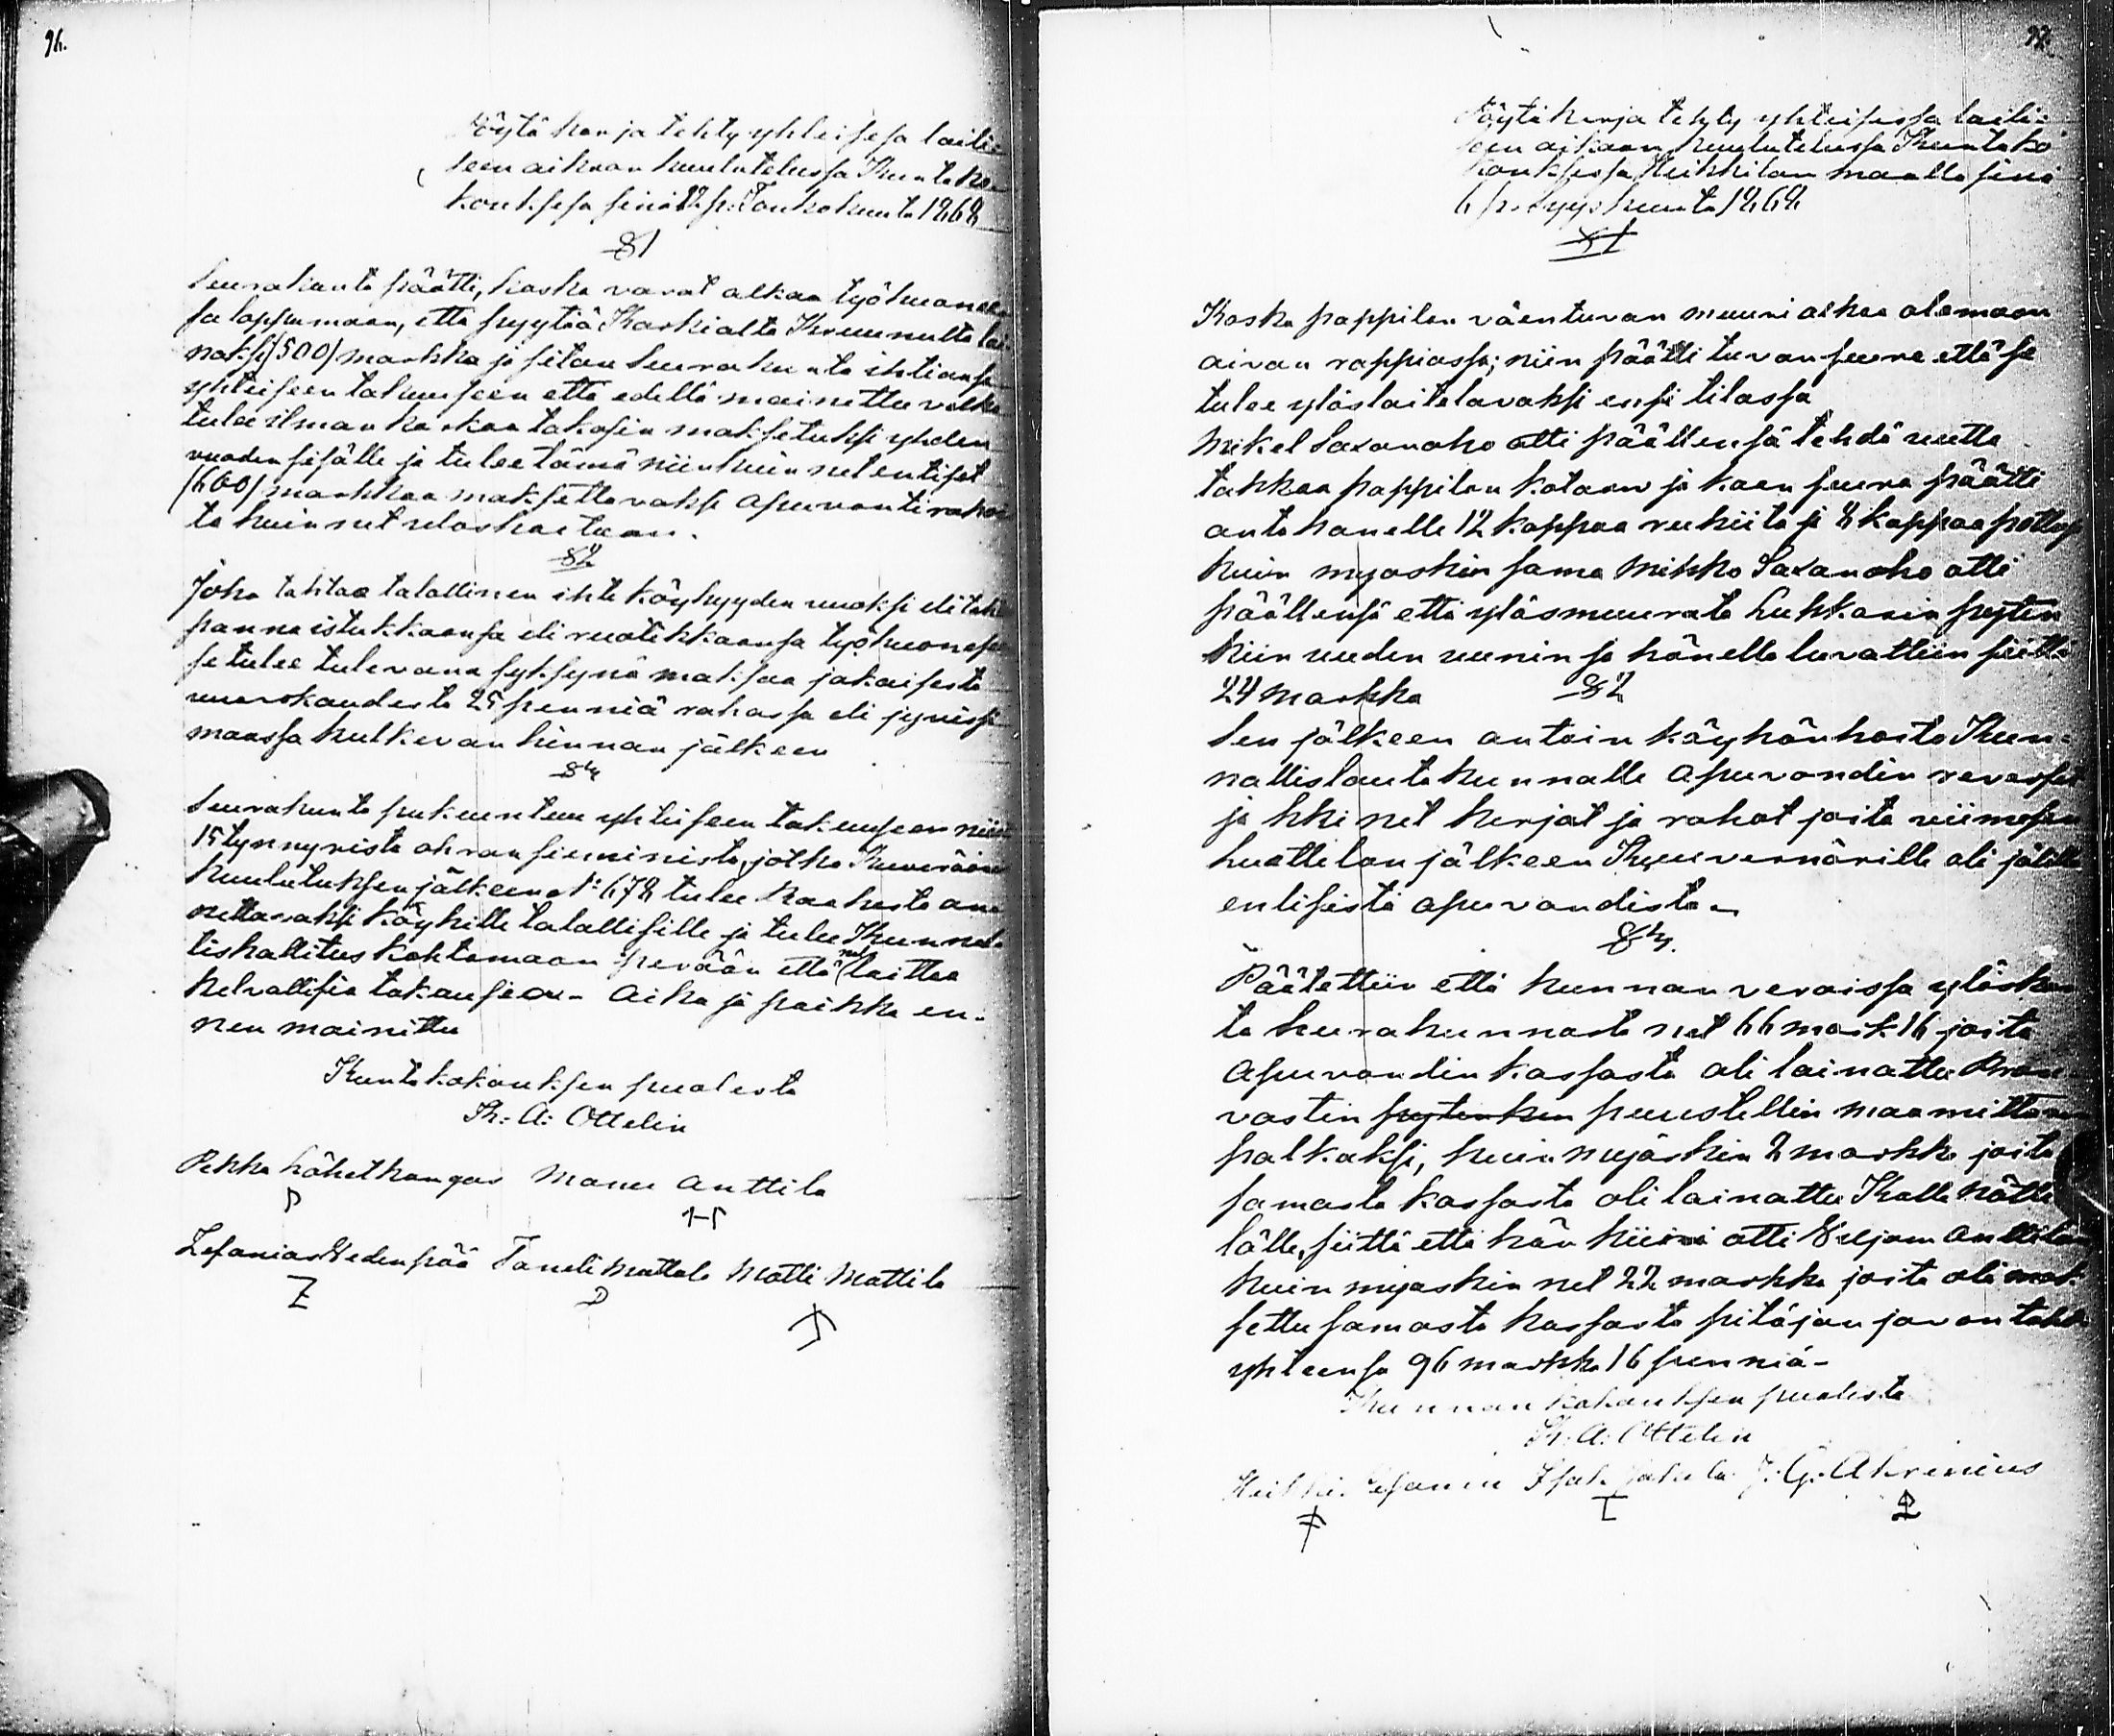 96.
Pöytäkerja tehty yhteisesä lailis
seen aikaan kuulutelussa Kuntako
kouksesa sinä 12 p: Toukokuuta 1868
§1
Seurakunta päätti, koska varat alkaa työhuonee
sa loppumaan, että pyytää Korkialta Kruunulta lai
naksi /500/ markka ja sitau Seurakunta ihtiänsä
yhteiseen takuuseen että edellä mainettu velka
tulee ilman korkoa takasin maksetuksi yhden
vuoden sisälle ja tulee tämä niinkuin net entiset
/600/ markkaa maksettavaksi apuvantirahois
ta kuin net uloskaetaan.
§2
Joka tahtoo talollinen ihte köyhyyden vuoksi eli tah
panna istukkaansa eli ruotikkaansa työhuonesee
se tulee tulevana syksynä maksaa jokaisesta
vuorokaudesta 25 penniä rahassa eli jyvissä
maassa kulkevan hinnan jälkeen
§3
Seurakunta pukeuntuu yhteiseen takuuseen niis
15 tynnyristä ohran sieministä, jotka Kuverööri
kuulutuksen jälkeen No 678 tulee Raahesta an
nettavaksi köyhille talollisille ja tulee Kunnal
lishallitus kohtamaan perään että net laittaa
kelvollisia takausia - Aika ja paikka en-
nen mainittu
Kuntakokouksen puolesta
K: A: Ottelin
Pekka Lähetkangas Manu Anttila
Zefanias Vedenpää Taneli Mattala Matti Mattila
97.
Pöytäkerja tehty yhteisessa laili-
seen aikaan kuulutelussa Kuntako
kouksessa Heikkilan maalla sinä
6 p. Syyskuuta 1868
§1
Koska pappilan väentuvan muuri alkaa olemaan
aivan rappiossa; niin päätti tuvan seura että se
tulee ylöslaitelavaksi ensi tilassa
Mikel Saxanoho otti päällensä tehdä uutta
takkaa pappilan kotaan ja kaan seura päätti
anta hanelle 12 kappaa rukiita ja 8 kappaa potluja
kuin myoskin sama Mikko Saxanoho otti
päällensä että ylösmuurata Lukkarin pöytin
kiin uuden uunin ja hänelle luvattiin siitä
24 markka §2
Sen jälkeen antoin käyhänhoito Kun-
nallislautakunnalle apuvandin reversit
ja kki net kerjat ja rahat joita viimesen
huottilan jälkeen Kuuvernörille oli jälillä
entisistä apuvandista -
§3.
Päätettiin että kunnan veroissa ylöskan
ta Seurakunnasta net 66 mark 16 joita
apuvandin kassasta oli lainattu Pro
vastin puustellin maamittarin
palkaksi, kuin myöskin 8 markka joita
samasta kassasta oli lainattu Kalle Nätti
lälle, siittä että hän kiini otti Viljam Anttilan
kuin myoskin net 22 markka joita oli mak-
settu samasta kassasta pitäjan jovan tahti
yhteensa 96 markka 16 penniä -
Kunnan kokouksen puolesta
K: A: Ottelin
Heikki Isak Jakula J: G: Ahrenius